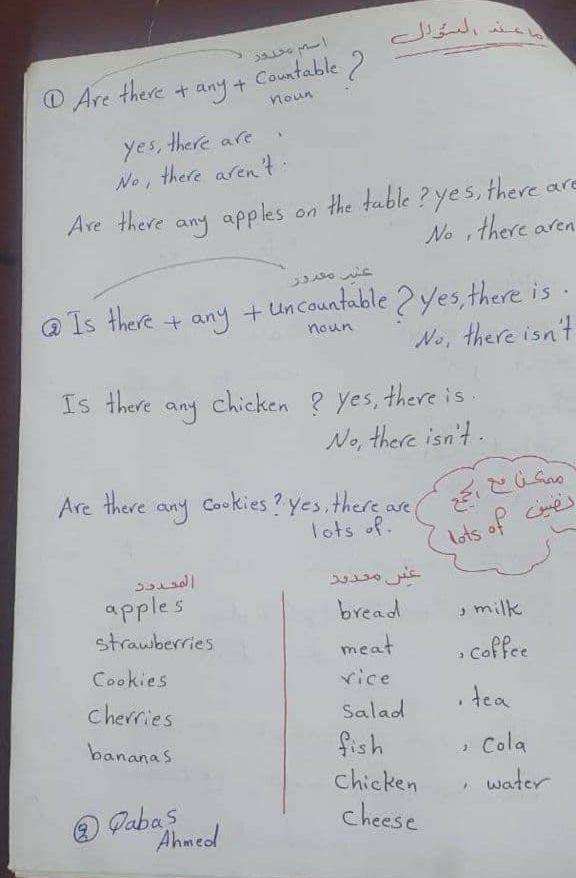 ما عند السؤال
اسم معدود
① Are there + any + Countable ?
noun
yes, there are .
No, there aren't.
Are there any apples on the table ? yes, there are
No , there aren
غير معدود
② Is there + any + Uncountable ? yes, there is .
noun No, there isn't
Is there any chicken ? yes, there is.
No, there isn't.
Are there any cookies ? yes, there are
lots of.
ممكن مع الجمع
نضيف
lots of
المعدود
apples
strawberries
Cookies
Cherries
bananas
غير معدود
bread , milk
meat , coffee
rice
Salad , tea
fish , Cola
Chicken , water
Cheese
② Qabas
Ahmed